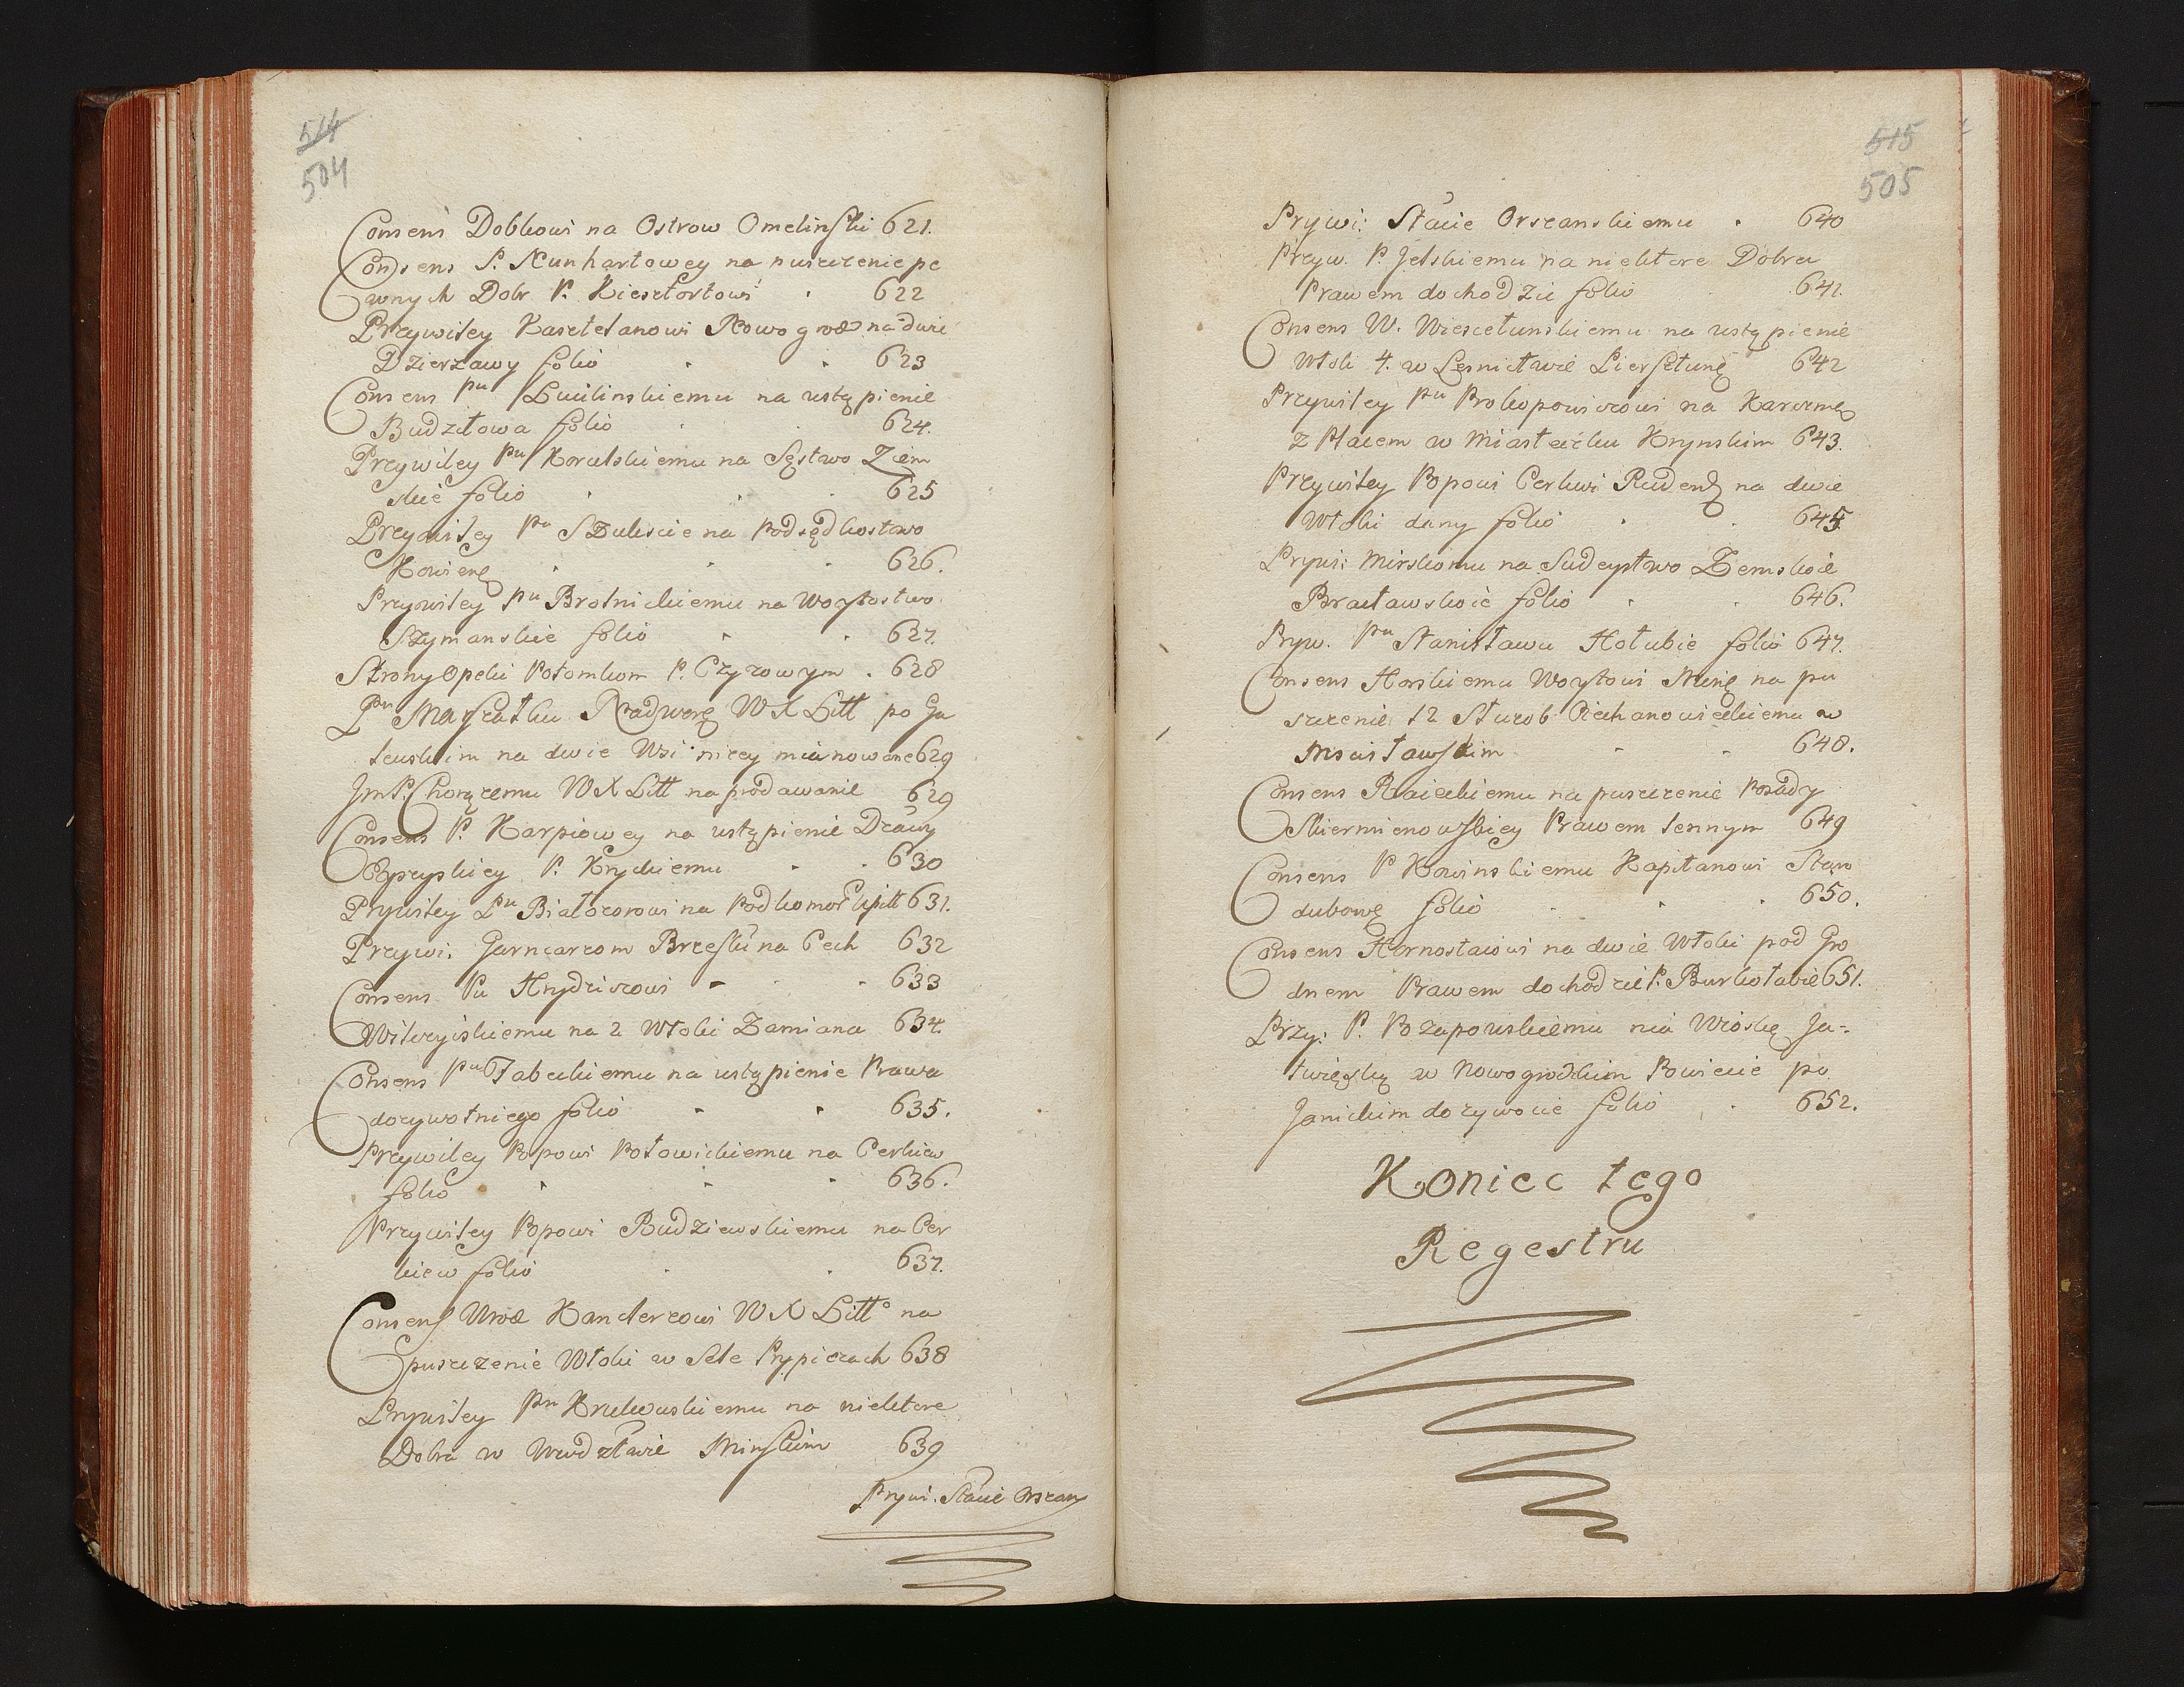 514
504
Consens Dobkowi na Ostrow Omelinski 621.
Consens P. Kunhartowey na puszczenie pe
wnych Dobr P. Kiesztortowi 622
Przywiley Kasztelanowi Nowogrod na dwie
Dzierzawy folio 623
Consens Pu Lucilinskiemu na ustąpienie
Budziłowa folio 624.
Przywiley Pu Koralskiemu na Sęstwo Ziem
skie folio 625
Przywiley Pu Szukscie na Podsędkostwo
Kowien 626.
Przywiley Pu Brotnickiemu na Woytostwo
Szymanskie folio 627.
Strony Opeki Potomkom P. Czyzowym 628
Pu Marszałku Nadworę WX Litt po Ja
leuskim na dwie Wsi nizey mianowane 629
JmP. Chorązemu WX Litt na prodawanie 629
Consens P. Karpiowey na ustąpienie Dzawy
P. Kryckiemu 630
Prywiley Pu Białozorowi na Podkomor Upitt 631.
Przywi. Garncarzom Brzesku na Cech 632
Consens Pu Hrydziczowi 633
Wilczyiskiemu na 2 Włoki Zamiana 634.
Consens Pu Jabuckiemu na ustąpienie Prawa
dozywotniego folio 635.
Przywiley Popowi Połowickiemu na Cerkiew
folio 636.
Przywiley Popowi Rudziewskiemu na Cer
kiew folio 637.
Consens Urod Kanclerzowi WX Litto na
puszczenie Włoki w Sele Prypiczach 638
Prywiley Pu Krukowskiemu na niektore
Dobra w Wwdztwie Minskim 639
Prywi. Stacie Orszan
515
505
Prywi: Stacie Orszanskiemu 640
Przyw. P. Jelskiemu na niektore Dobra
Prawem dochodzic folio 641.
Consens W. Wieszczunskiemu na ustąpienie
Włok 4. w Lesnictwie Lierszunę 642
Przywiley Pu Prokopowiczowi na Karczmę
z Placem w Miasteczku Krynskim 643.
Przywiley Popowi Cerkwi Rudenę na dwie
Włoki dany folio 645
Prywi: Mirskomu na Sudeystwo Zemskoie
Bracławskoie folio 646.
Pryw. Pu Stanisławu Hołubie folio 647.
Consens Horskiemu Woytowi Minę na pu
szczenie 12 Służob Ciechanowieckiemu w
Mscisławskim 648.
Consens Raieckiemu na puszczenie Posady
Skiermienowskiey Prawem lennym 649
Consens P Kowinskiemu Kapitanowi Staro
dubowę folio 650.
Consens Hornostaiowi na dwie Włoki pod Gro
dnem Prawem dochodzic P. Burkołabie 651.
Przy: P. Pozapowskiemu na Wioskę Ja=
twięską w Nowogrodzkim Powiecie po
Janickim dozywocie folio 652.
Koniec tego
Regestru